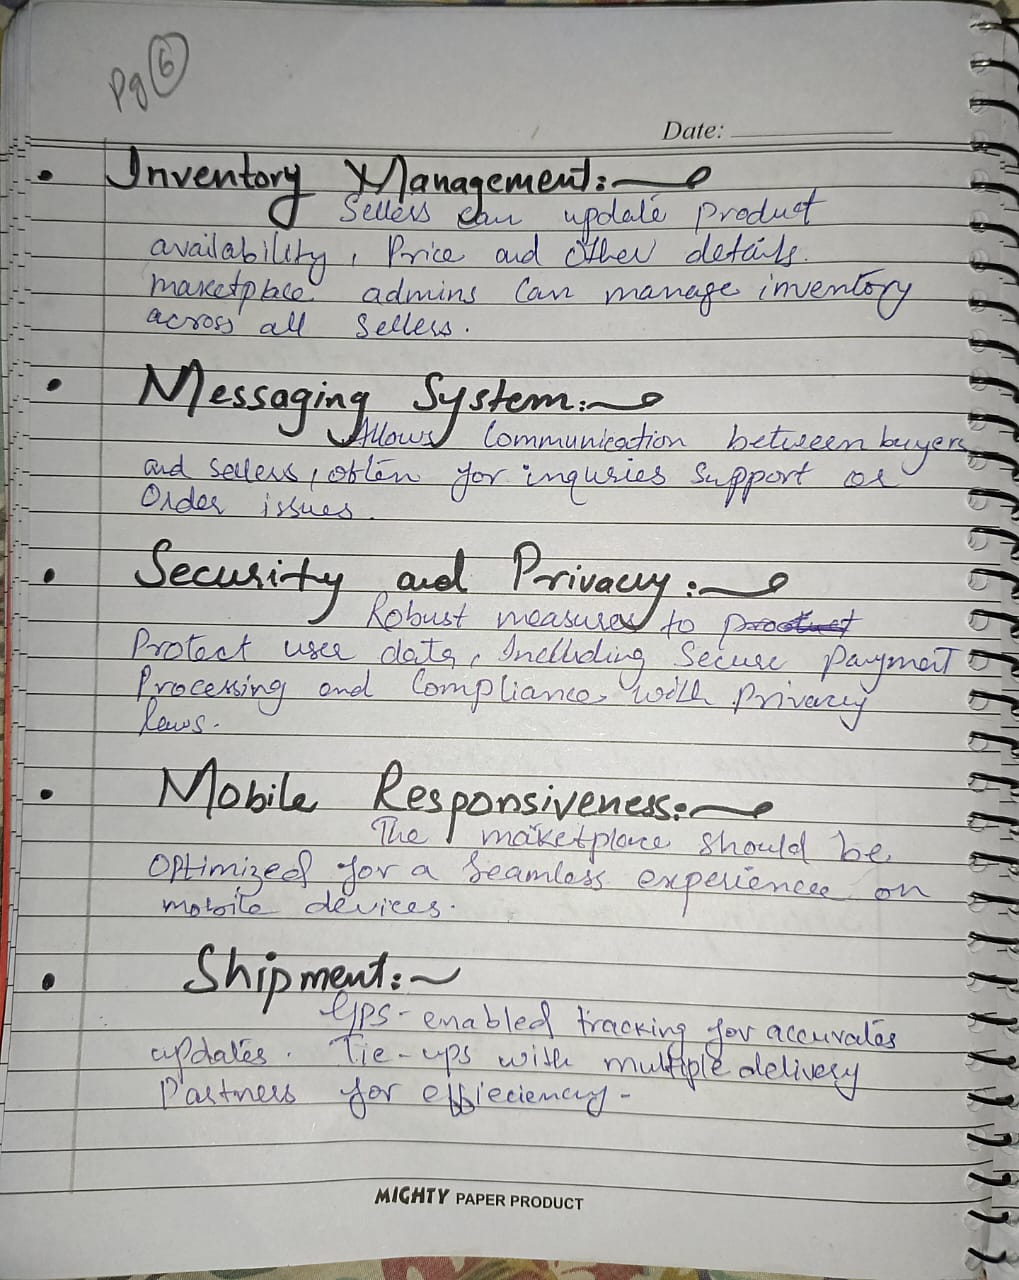 Pg 6
Date:
• Inventory Management:~
Sellers can update product
availability, Price and other details.
marketplace admins Can manage inventory
across all sellers.
• Messaging System:~
Allows Communication between buyers
and sellers, often for inquries Support or
Order issues.
• Security and Privacy:~
Robust measures to product
Protect user data, Inclluding Secure payment
Processing and Compliance with Privacy
laws.
• Mobile Responsiveness:~
The marketplace should be
Optimized for a Seamless experience on
mobile devices.
• Shipment:~
GPS-enabled tracking for accurates
updates. Tie-ups with multiple delivery
Partners for effieciency-
MIGHTY PAPER PRODUCT